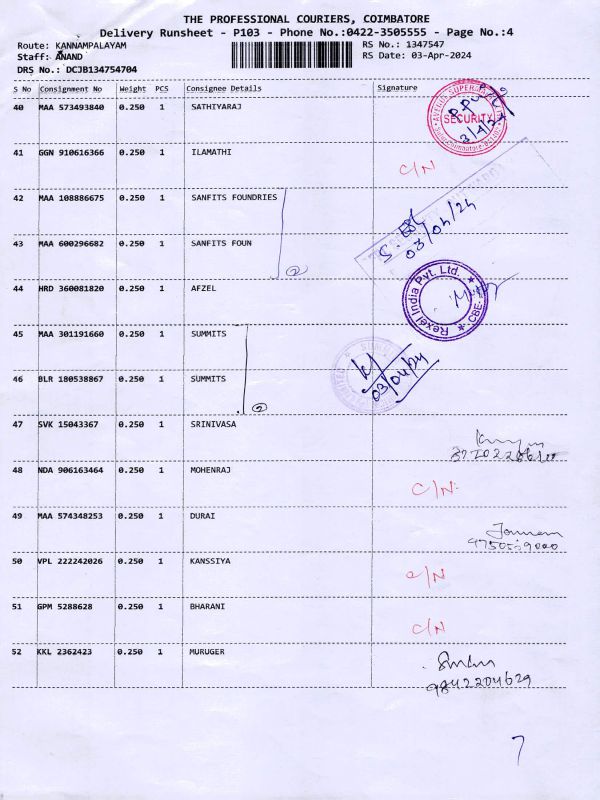 THE PROFESSIONAL COURIERS, COIMBATORE
Delivery Runsheet - P103 - Phone No.:0422-3505555 - Page No.:4
Route: KANNAMPALAYAM RS No.: 1347547
Staff: ANAND RS Date: 03-Apr-2024
DRS No.: DCJB134754704
S No Consignment No Weight PCS Consignee Details Signature
40 MAA 573493840 0.250 1 SATHIYARAJ
SECURITY
3/4/24
41 GGN 910616366 0.250 1 ILAMATHI C/N
42 MAA 108886675 0.250 1 SANFITS FOUNDRIES
03/04/24
43 MAA 600296682 0.250 1 SANFITS FOUN
2
44 HRD 360081820 0.250 1 AFZEL
Rexel India Pvt. Ltd. CBE-
45 MAA 301191660 0.250 1 SUMMITS
03/04/24
46 BLR 180538867 0.250 1 SUMMITS
2
47 SVK 15043367 0.250 1 SRINIVASA
48 NDA 906163464 0.250 1 MOHENRAJ C/N
49 MAA 574348253 0.250 1 DURAI
50 VPL 222242026 0.250 1 KANSSIYA C/N
51 GPM 5288628 0.250 1 BHARANI C/N
52 KKL 2362423 0.250 1 MURUGER
9842204629
7